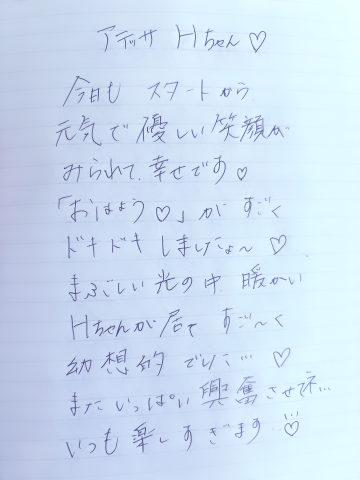 アデッサ Hちゃん♡
今日も スタートから
元気で優しい笑顔が
みられて、幸せです♡
「おはよう♡」が すごく
ドキドキ しましたよ〜♡
まぶしい 光の中 暖かい
Hちゃんが居て すご〜く
幼想的 でした…♡
またいっぱい 興奮させてネ…
いつも 楽しすぎます♡